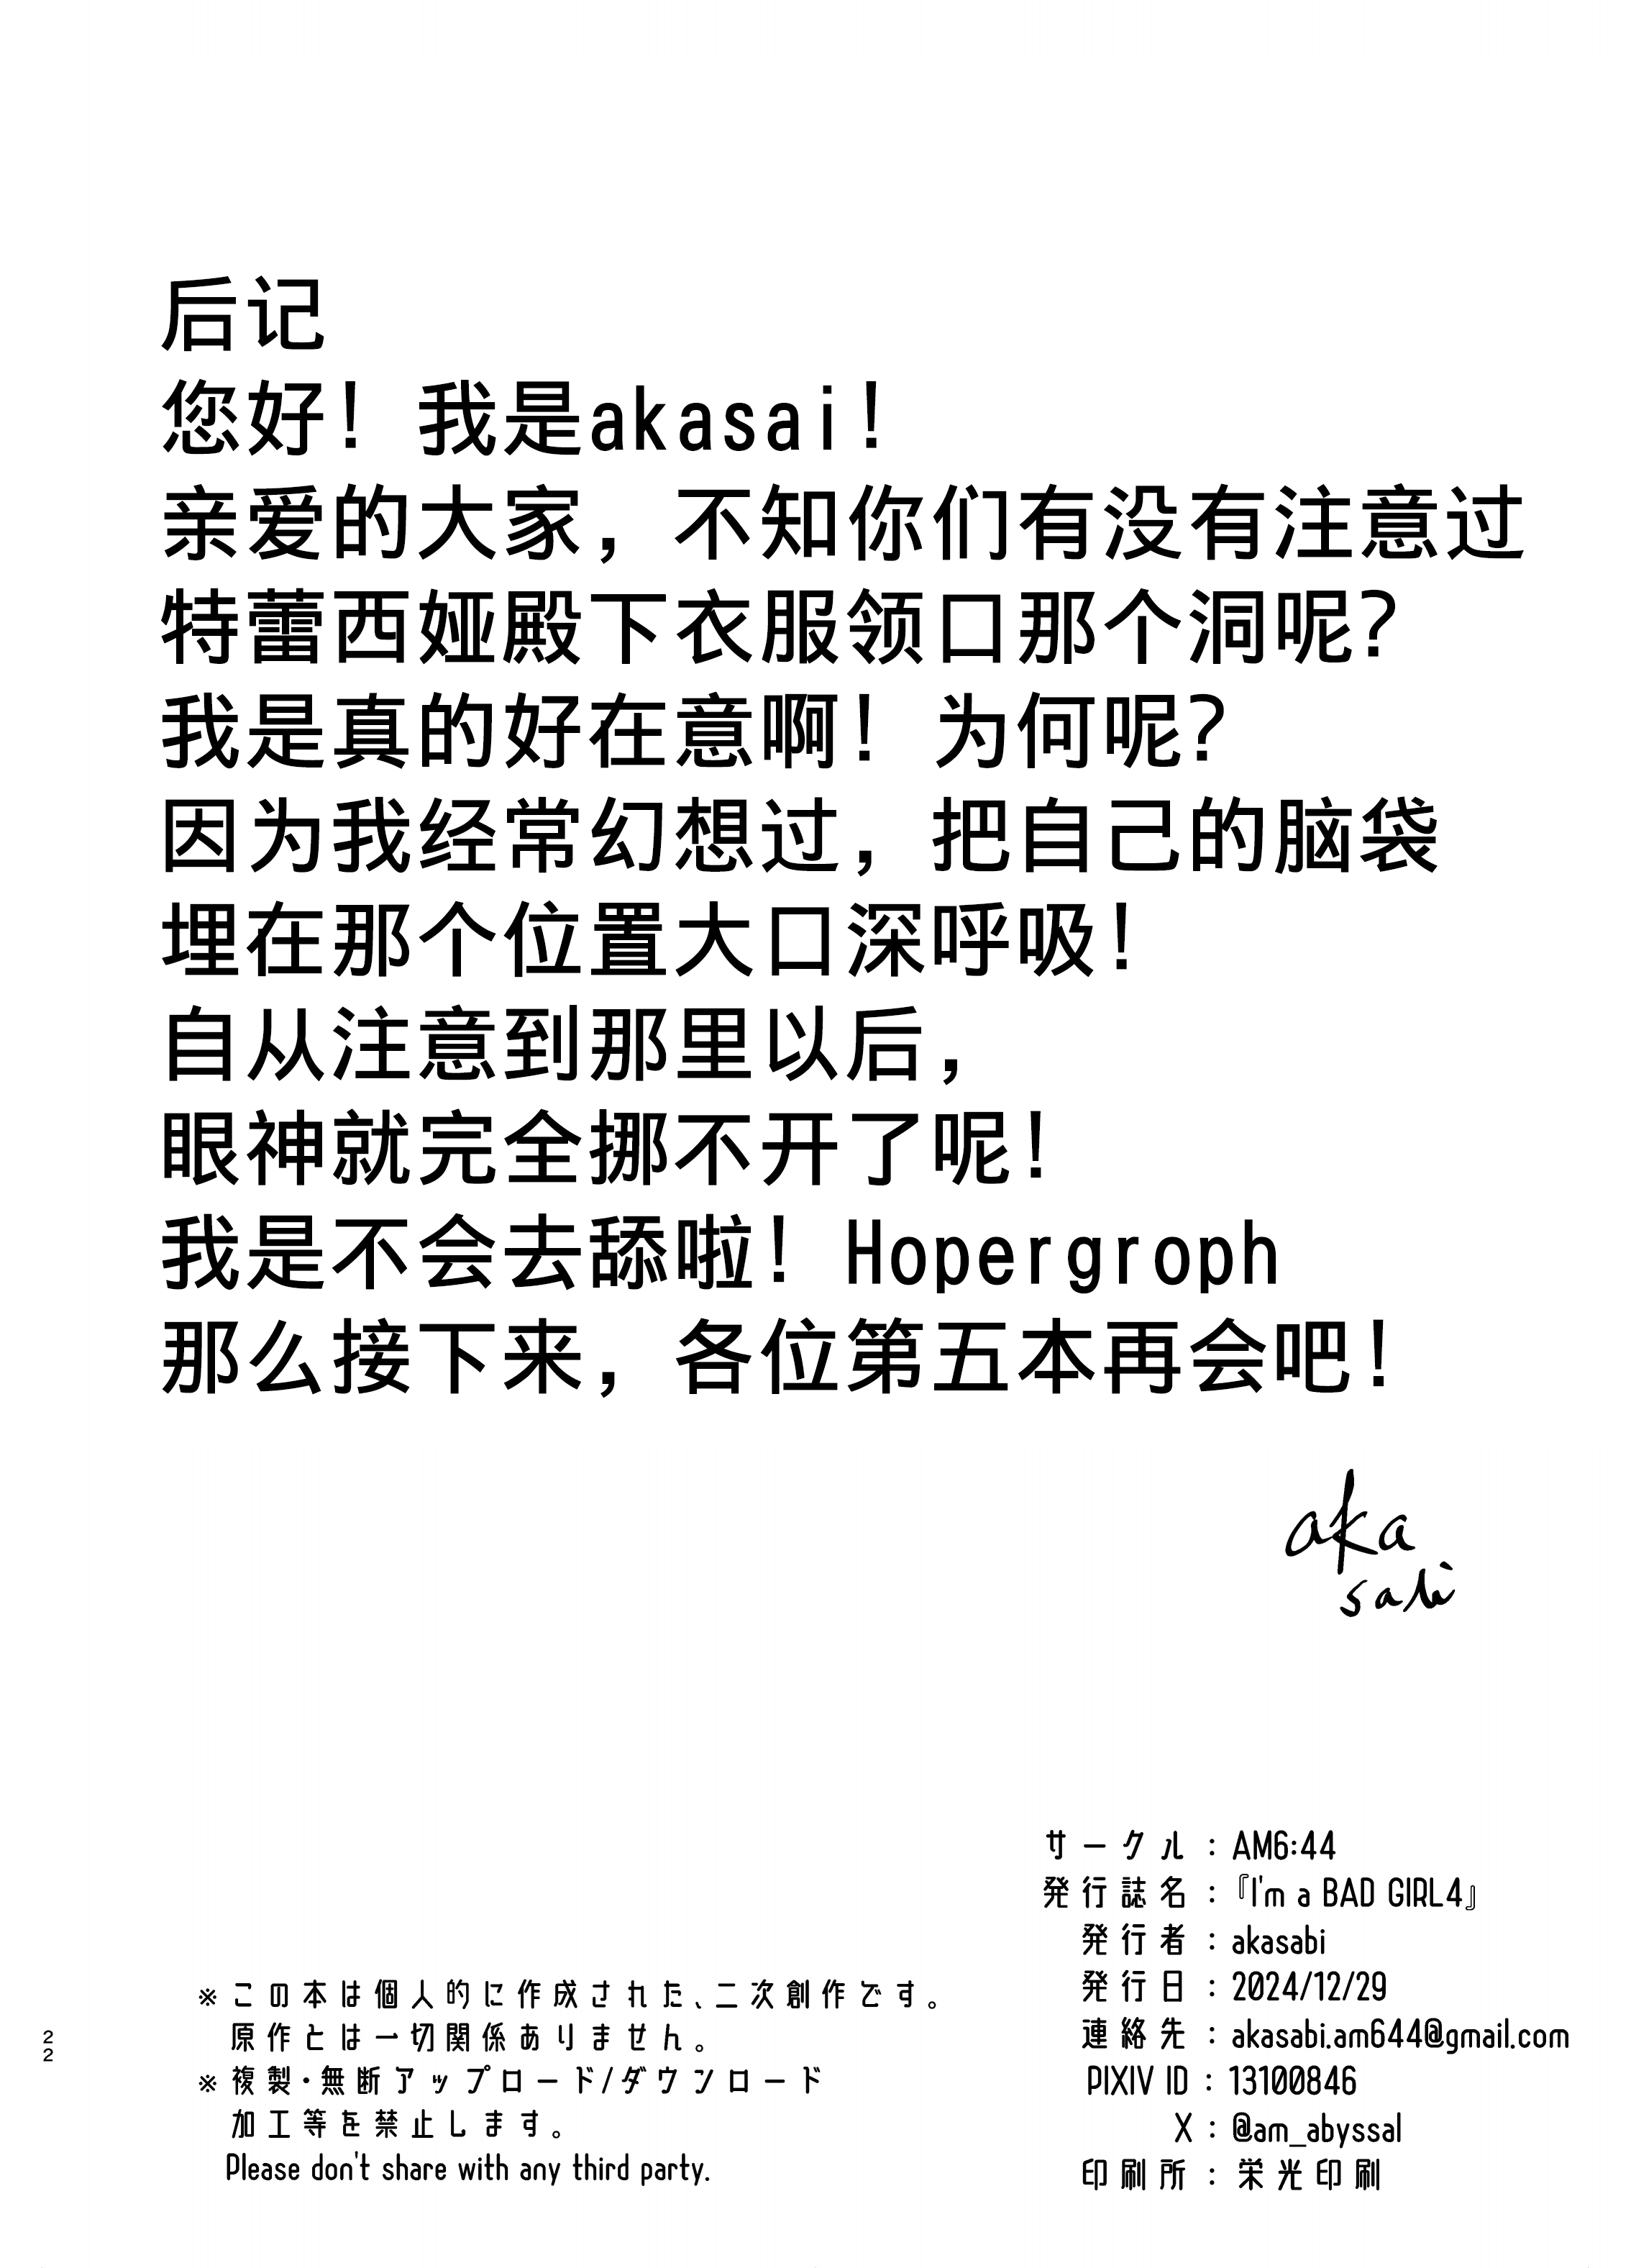 后记
您好！我是akasai！
亲爱的大家，不知你们有没有注意过
特蕾西娅殿下衣服领口那个洞呢？
我是真的好在意啊！为何呢？
因为我经常幻想过，把自己的脑袋
埋在那个位置大口深呼吸！
自从注意到那里以后，
眼神就完全挪不开了呢！
我是不会去舔啦！Hopergroph
那么接下来，各位第五本再会吧！
aka
sabi
サークル：AM6:44
発行誌名：『I'm a BAD GIRL4』
発行者：akasabi
発行日：2024/12/29
連絡先：akasabi.am644@gmail.com
PIXIV ID：13100846
X：@am_abyssal
印刷所：栄光印刷
※この本は個人的に作成された、二次創作です。
原作とは一切関係ありません。
※複製・無断アップロード/ダウンロード
加工等を禁止します。
Please don't share with any third party.
22